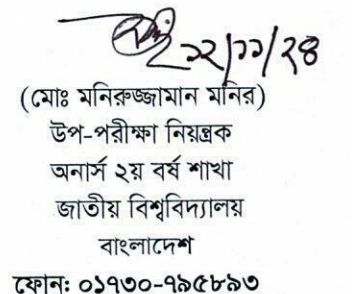 ২২/১১/২৪
(মোঃ মনিরুজ্জামান মনির)
উপ-পরীক্ষা নিয়ন্ত্রক
অনার্স ২য় বর্ষ শাখা
জাতীয় বিশ্ববিদ্যালয়
বাংলাদেশ
ফোন: ০১৭৩০-৭৯৫৮৯৩